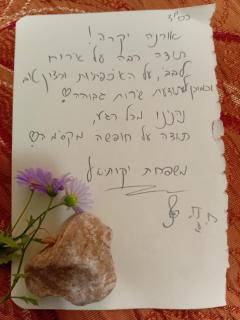 בס"ד
אורנה יקרה!
תודה רבה על אירוח
לבבי, על האכפתיות והרצון טוב
וכמובן לתודעת שירות גבוהה♡
נהנינו מכל רגע,
תודה על חופשה מקסימה♡!
משפחת יקותיאל